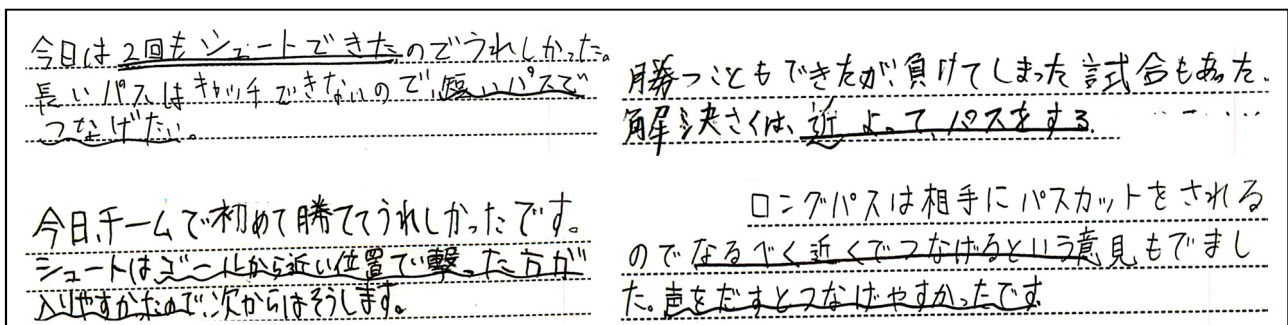 今日は2回もシュートできたのでうれしかった。
長いパスはキャッチできないので、短いパスで
つなげたい。
今日、チームで初めて勝ててうれしかったです。
シュートはゴールから近い位置で撃った方が
入りやすかたので、次からはそうします。
勝つこともできたが、負けてしまった試合もあった。
解決さくは、近よって、パスをする。
ロングパスは相手にパスカットをされる
のでなるべく近くでつなげるという意見もでまし
た。声をだすとつなげやすかったです